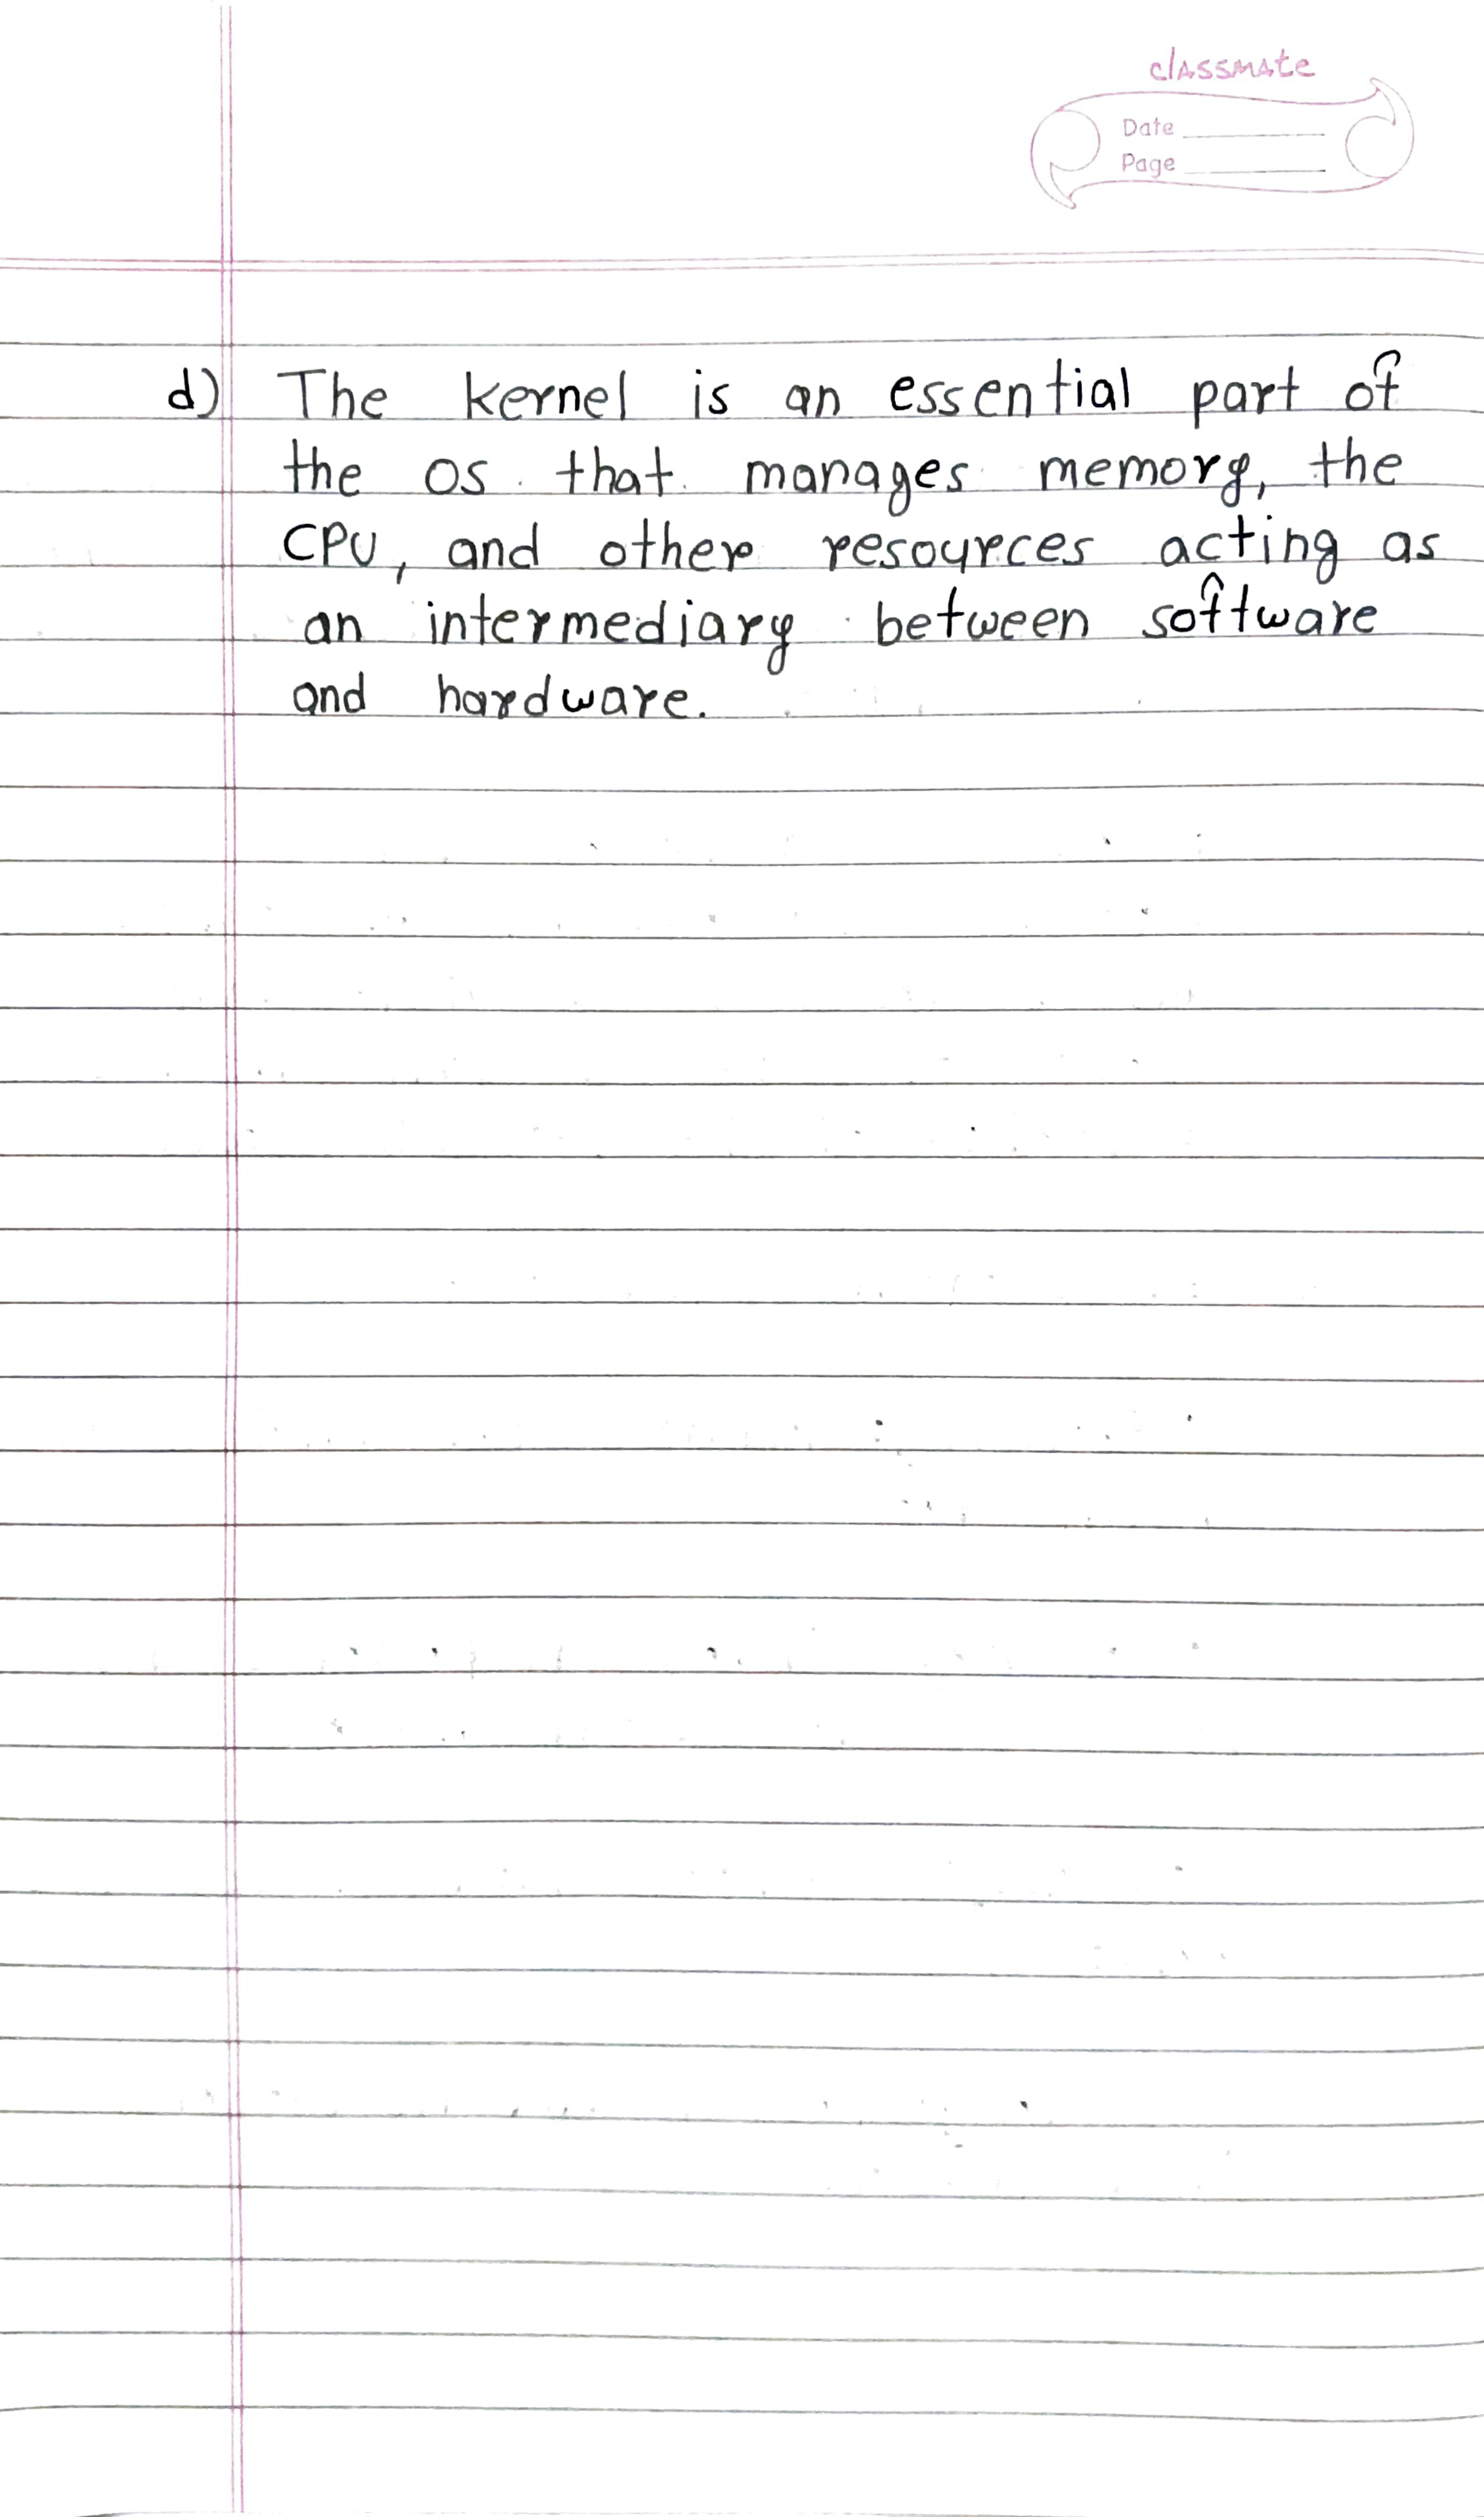 classmate
Date
Page
d) The kernel is an essential part of
the OS that manages memory, the
CPU, and other resources acting as
an intermediary between software
and hardware.